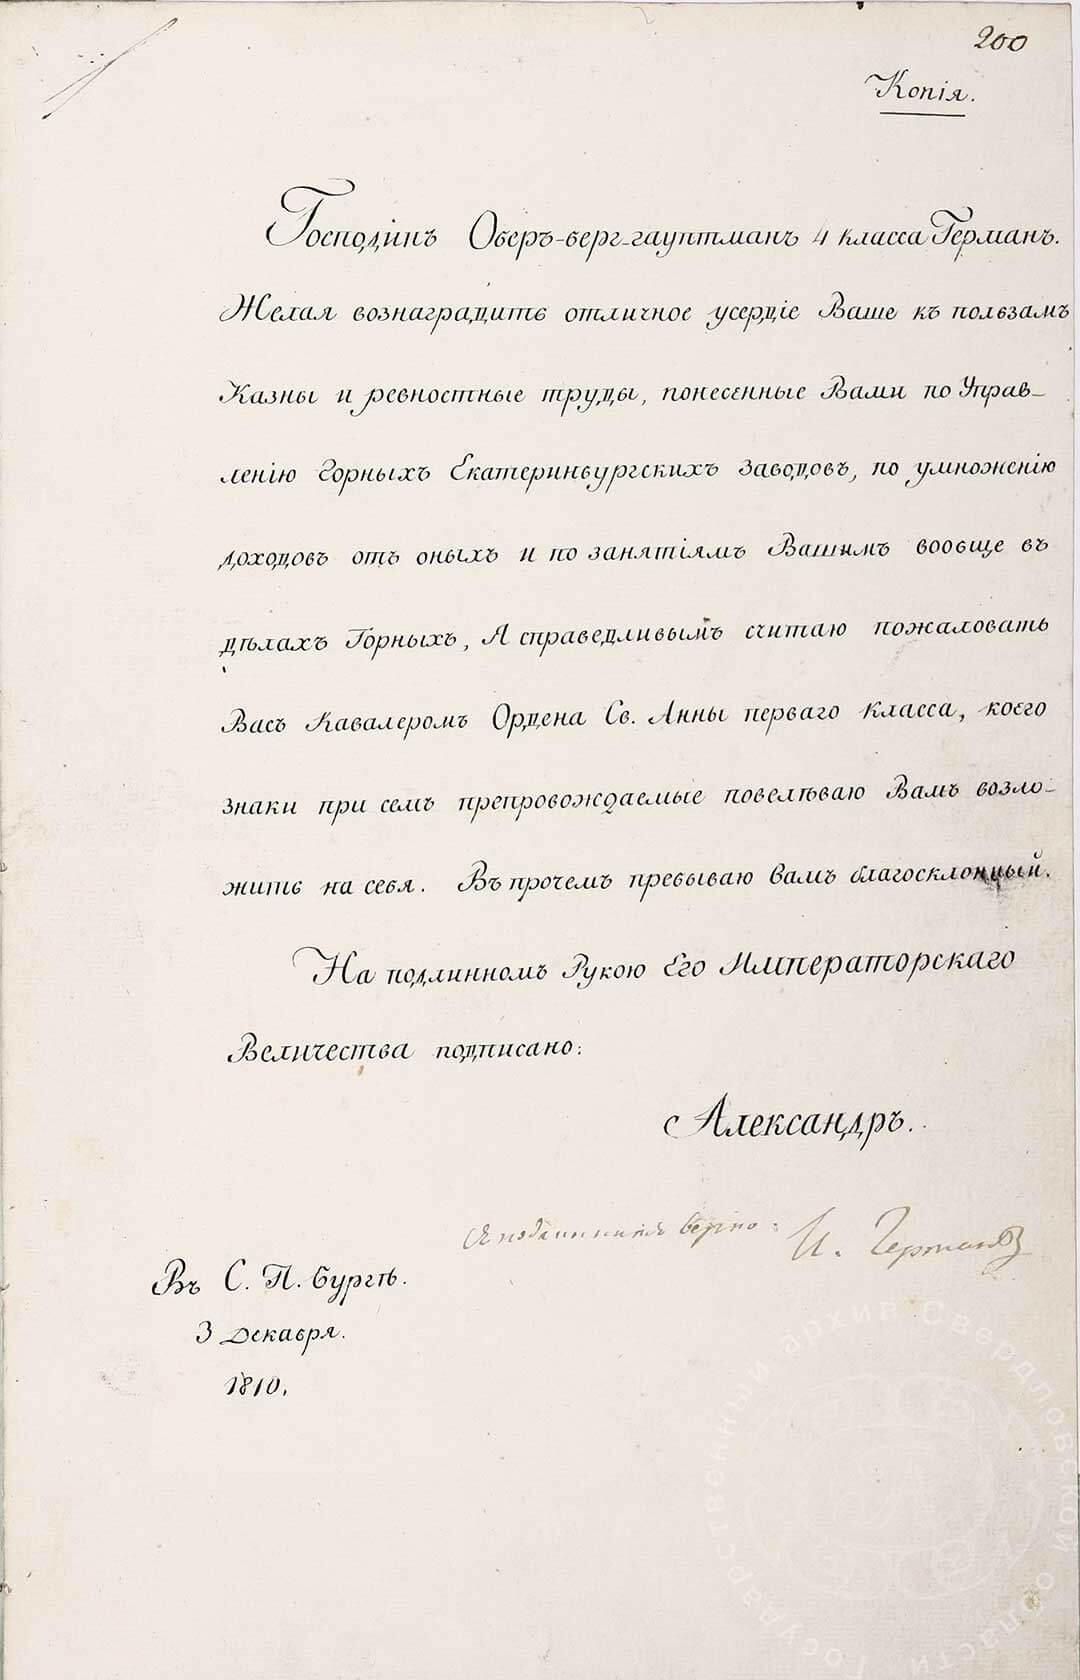 200
Копія.
Господинъ Оберъ-берг-гауптманъ 4 класса Германъ.
Желая вознаградить отличное усердіе Ваше къ пользамъ
Казны и ревностные труды, понесенные Вами по Управ-
ленію Горныхъ Екатеринбургскихъ Заводовъ, по умноженію
доходовъ отъ оныхъ и по занятіямъ Вашимъ вообще въ
дѣлахъ Горныхъ, Я справедливымъ считаю пожаловать
Васъ Кавалеромъ Ордена Св. Анны перваго класса, коего
знаки при семъ препровождаемые повелѣваю Вамъ возло-
жить на себя. Въ прочемъ пребываю вамъ благосклонный.
На подлинномъ Рукою Его Императорскаго
Величества подписано:
Александръ.
Съ подлиннымъ вѣрно: И. Германъ
Въ С. П. бургѣ.
3 Декабря.
1810.
Государственный архив Свердловской области